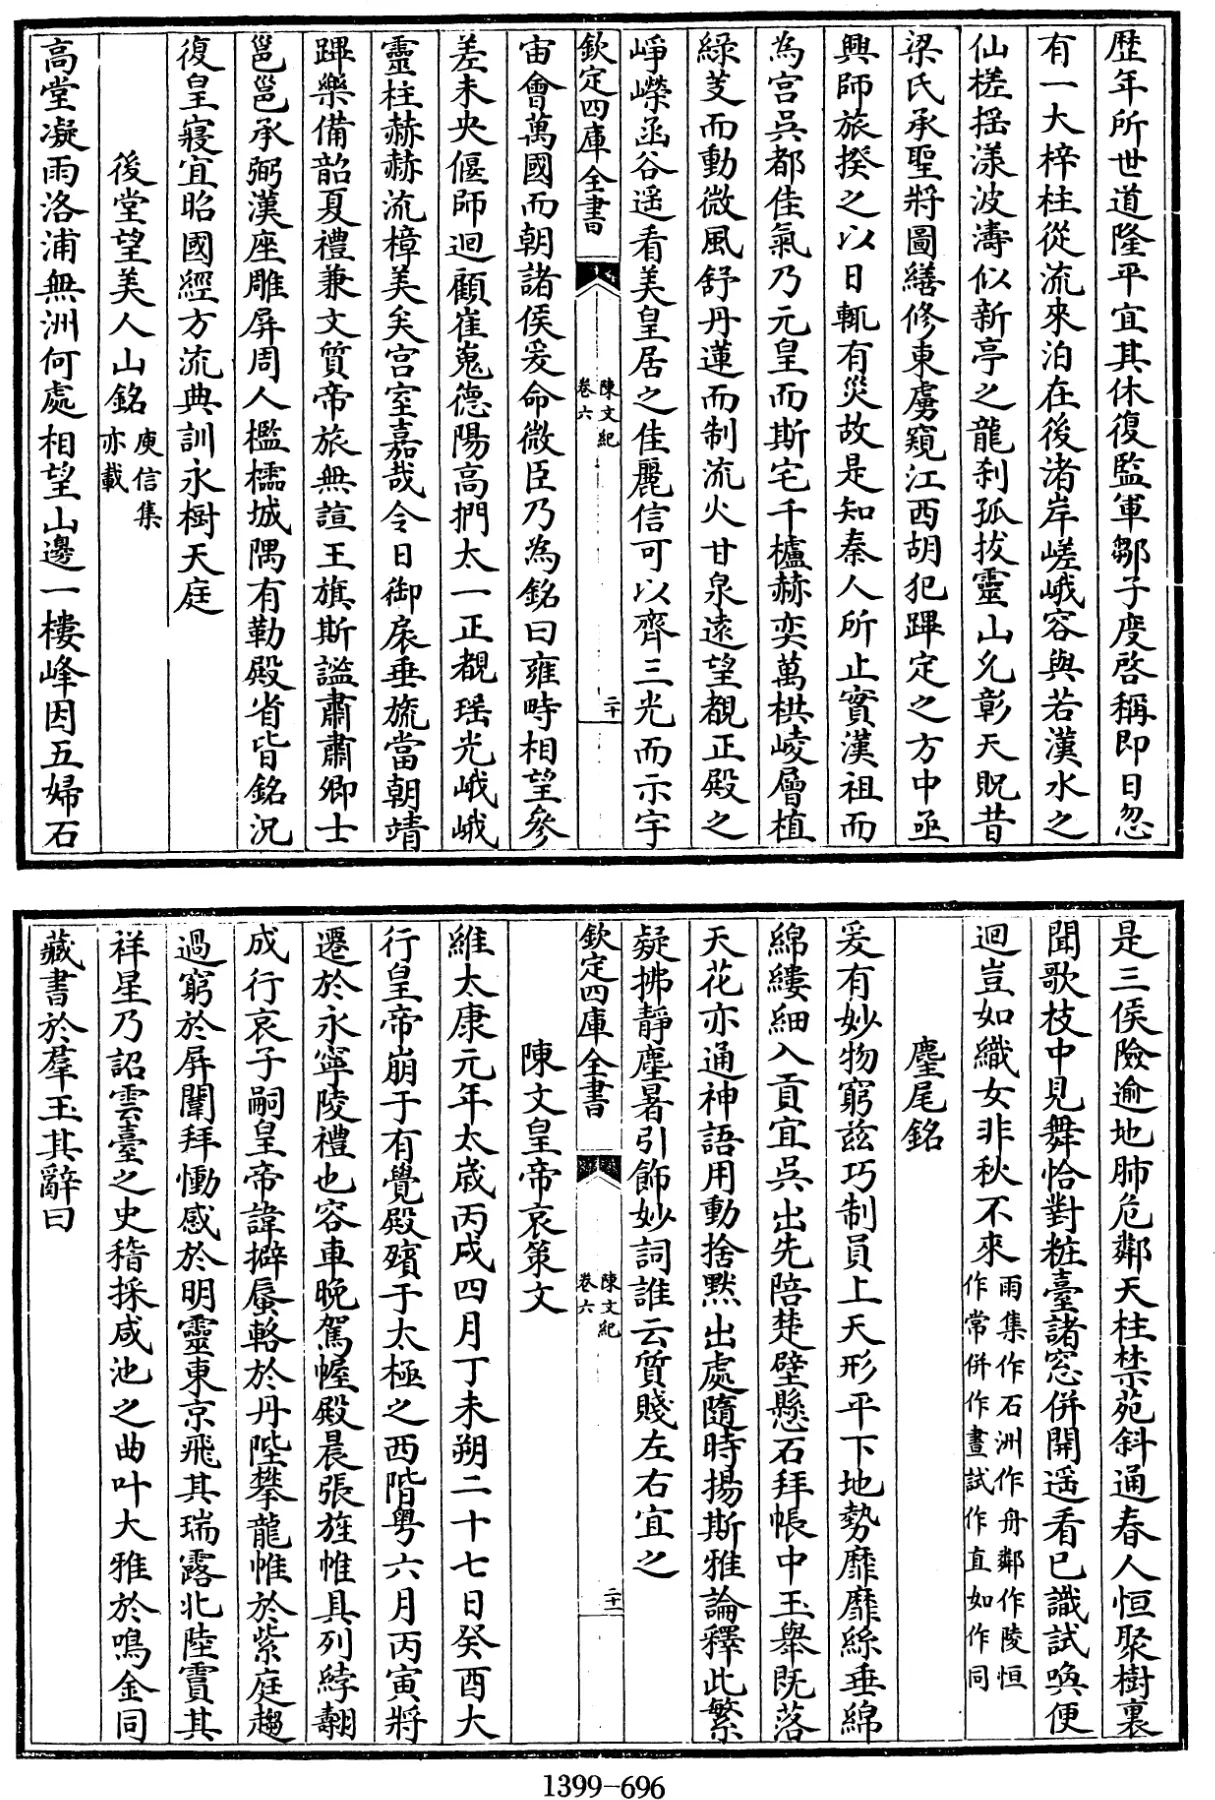 歴年所世道隆平宜其休復監軍鄒子度啓稱即日忽
有一大梓柱從流來泊在後渚岸嵯峨容與若漢水之
仙槎揺漾波濤似新亭之龍刹孤拔靈山允彰天貺昔
梁氏承聖將圖繕修東虜窺江西胡犯蹕定之方中亟
興師旅揆之以日輒有災故是知秦人所止實漢祖而
為宫呉都佳氣乃元皇而斯宅千櫨赫奕萬栱崚層植
緑芰而動微風舒丹蓮而制流火甘泉遠望覩正殿之
崢嶸函谷遥看美皇居之佳麗信可以齊三光而示宇
欽定四庫全書
陳文紀
卷六
二十
宙會萬國而朝諸侯爰命微臣乃為銘曰雍畤相望參
差未央偃師迴顧崔嵬德陽高捫太一正覩瑶光峨峨
靈柱赫赫流樟美矣宫室嘉哉令日御扆垂旒當朝靖
蹕樂備韶夏禮兼文質帝旅無諠王旗斯謐肅肅卿士
邕邕承弼漢座雕屏周人檻櫺城隅有勒殿省皆銘况
復皇寢宜昭國經方流典訓永樹天庭
後堂望美人山銘 庾信集
亦載
高堂凝雨洛浦無洲何處相望山邊一樓峰因五婦石
是三侯險逾地肺危鄰天柱禁苑斜通春人恒聚樹裏
聞歌枝中見舞恰對粧臺諸窓併開遥看已識試喚便
迴豈如織女非秋不來 雨集作石洲作舟鄰作陵恒
作常併作晝試作直如作同
麈尾銘
爰有妙物窮兹巧制員上天形平下地勢靡靡絲垂綿
綿縷細入貢宜呉出先陪楚壁懸石拜帳中玉舉既落
天花亦通神語用動捨黙出處隨時揚斯雅論釋此繁
疑拂靜塵暑引飾妙詞誰云質賤左右宜之
欽定四庫全書
陳文紀
卷六
二十一
陳文皇帝哀策文
維太康元年太歳丙戌四月丁未朔二十七日癸酉大
行皇帝崩于有覺殿殯于太極之西階粤六月丙寅將
遷於永寧陵禮也容車晚駕幄殿晨張旌帷具列綍翿
成行哀子嗣皇帝諱擗蜃輅於丹陛攀龍帷於紫庭趨
過窮於屏闈拜慟感於明靈東京飛其瑞露北陸霣其
祥星乃詔雲臺之史稽採咸池之曲叶大雅於鳴金同
藏書於羣玉其辭曰
1399-696